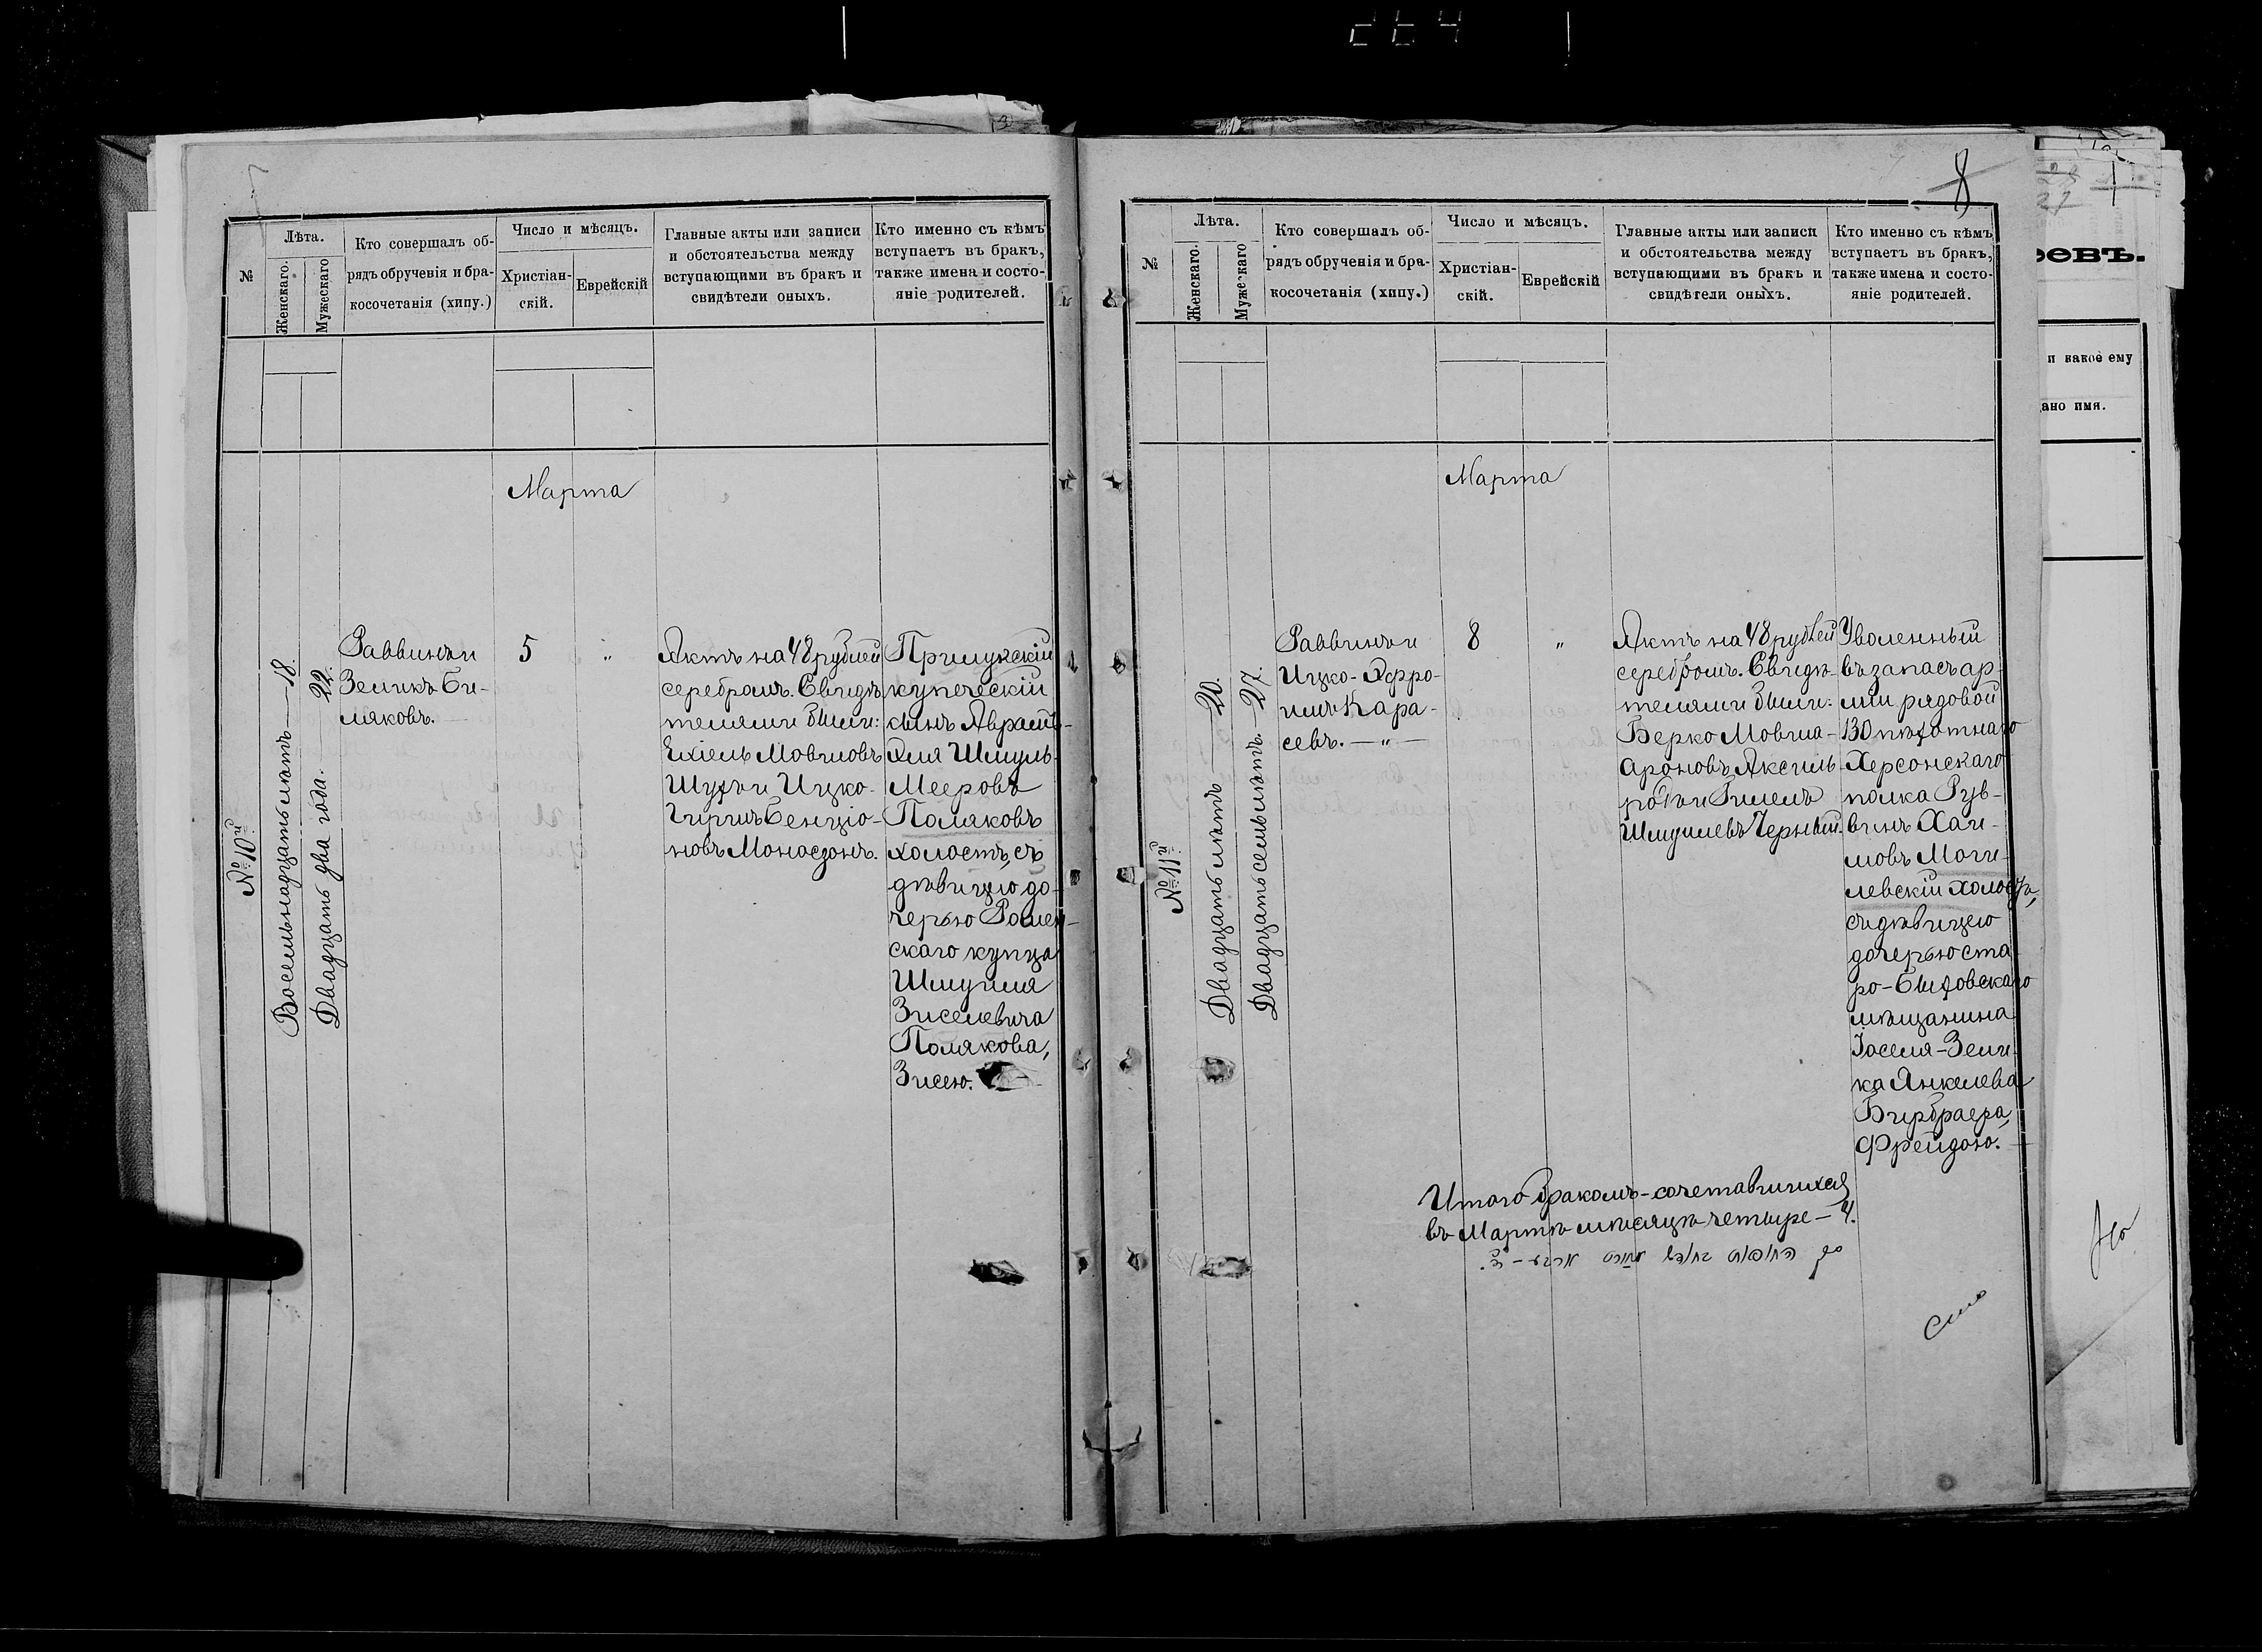 264
№
Лѣта.
Женскаго.
Мужескаго
Кто совершалъ об-
рядъ обрученія и бра-
косочетанія (хипу.)
Число и мѣсяцъ.
Христіан-
скій.
Еврейскій
Главные акты или записи
и обстоятельства между
вступающими въ бракъ и
свидѣтели оныхъ.
Кто именно съ кѣмъ
вступаетъ въ бракъ,
также имена и состо-
яніе родителей.
Марта
№ 10й
Восемьнадцать лѣтъ — 18.
Двадцать два года. 22.
Раввинъ и
Зеликъ Би-
ляковъ.
5
"
Актъ на 48 рублей
серебромъ. Свидѣ-
телями были:
Ехіель Мовшовъ
Шухъ и Ицко-
Гиршъ Бенціо-
новъ Моносзонъ.
Прилукскій
купеческій
сынъ Авраамъ-
Эля Шмуль-
Мееровъ
Поляковъ
холостъ, съ
дѣвицею до-
черью Ромен-
скаго купца
Шмуиля
Зиселевича
Полякова,
Зисею.
8
№
Лѣта.
Женскаго.
Мужескаго
Кто совершалъ об-
рядъ обрученія и бра-
косочетанія (хипу.)
Число и мѣсяцъ.
Христіан-
скій.
Еврейскій
Главные акты или записи
и обстоятельства между
вступающими въ бракъ и
свидѣтели оныхъ.
Кто именно съ кѣмъ
вступаетъ въ бракъ,
также имена и состо-
яніе родителей.
Марта
№ 11й
Двадцать лѣтъ — 20.
Двадцать семь лѣтъ — 27.
Раввинъ и
Ицко-Эфро-
имъ Кара-
севъ. — " —
8
"
Актъ на 48 рублей
серебромъ. Свидѣ-
телями были:
Берко Мовша-
Ароновъ Аксель-
родъ и Гилель
Шмуилевъ Черный.
Уволенный
въ запасъ ар-
міи рядовой
130 пѣхотнаго
Херсонскаго
полка Рув-
винъ Хаи-
мовъ Моги-
левскій холостъ,
съ дѣвицею
дочерью ста-
ро-Быховскаго
мѣщанина
Іоселя-Зели-
ка Янкелева
Бирбраера,
Фрейдою.
Итого бракомъ-сочетавшихся
въ Мартѣ мѣсяцѣ четыре — 4.
еевъ.
и какое ему
дано имя.